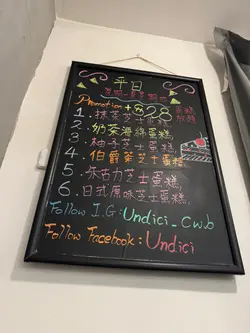 平日
星期一至星期三
Promotion +$28 蛋糕放題
1. 抹茶芝士蛋糕
2. 奶茶海綿蛋糕
3. 柚子芝士蛋糕
4. 伯爵茶芝士蛋糕
5. 朱古力芝士蛋糕
6. 日式原味芝士蛋糕
Follow I.G: Undici_cwb
Follow Facebook: Undici